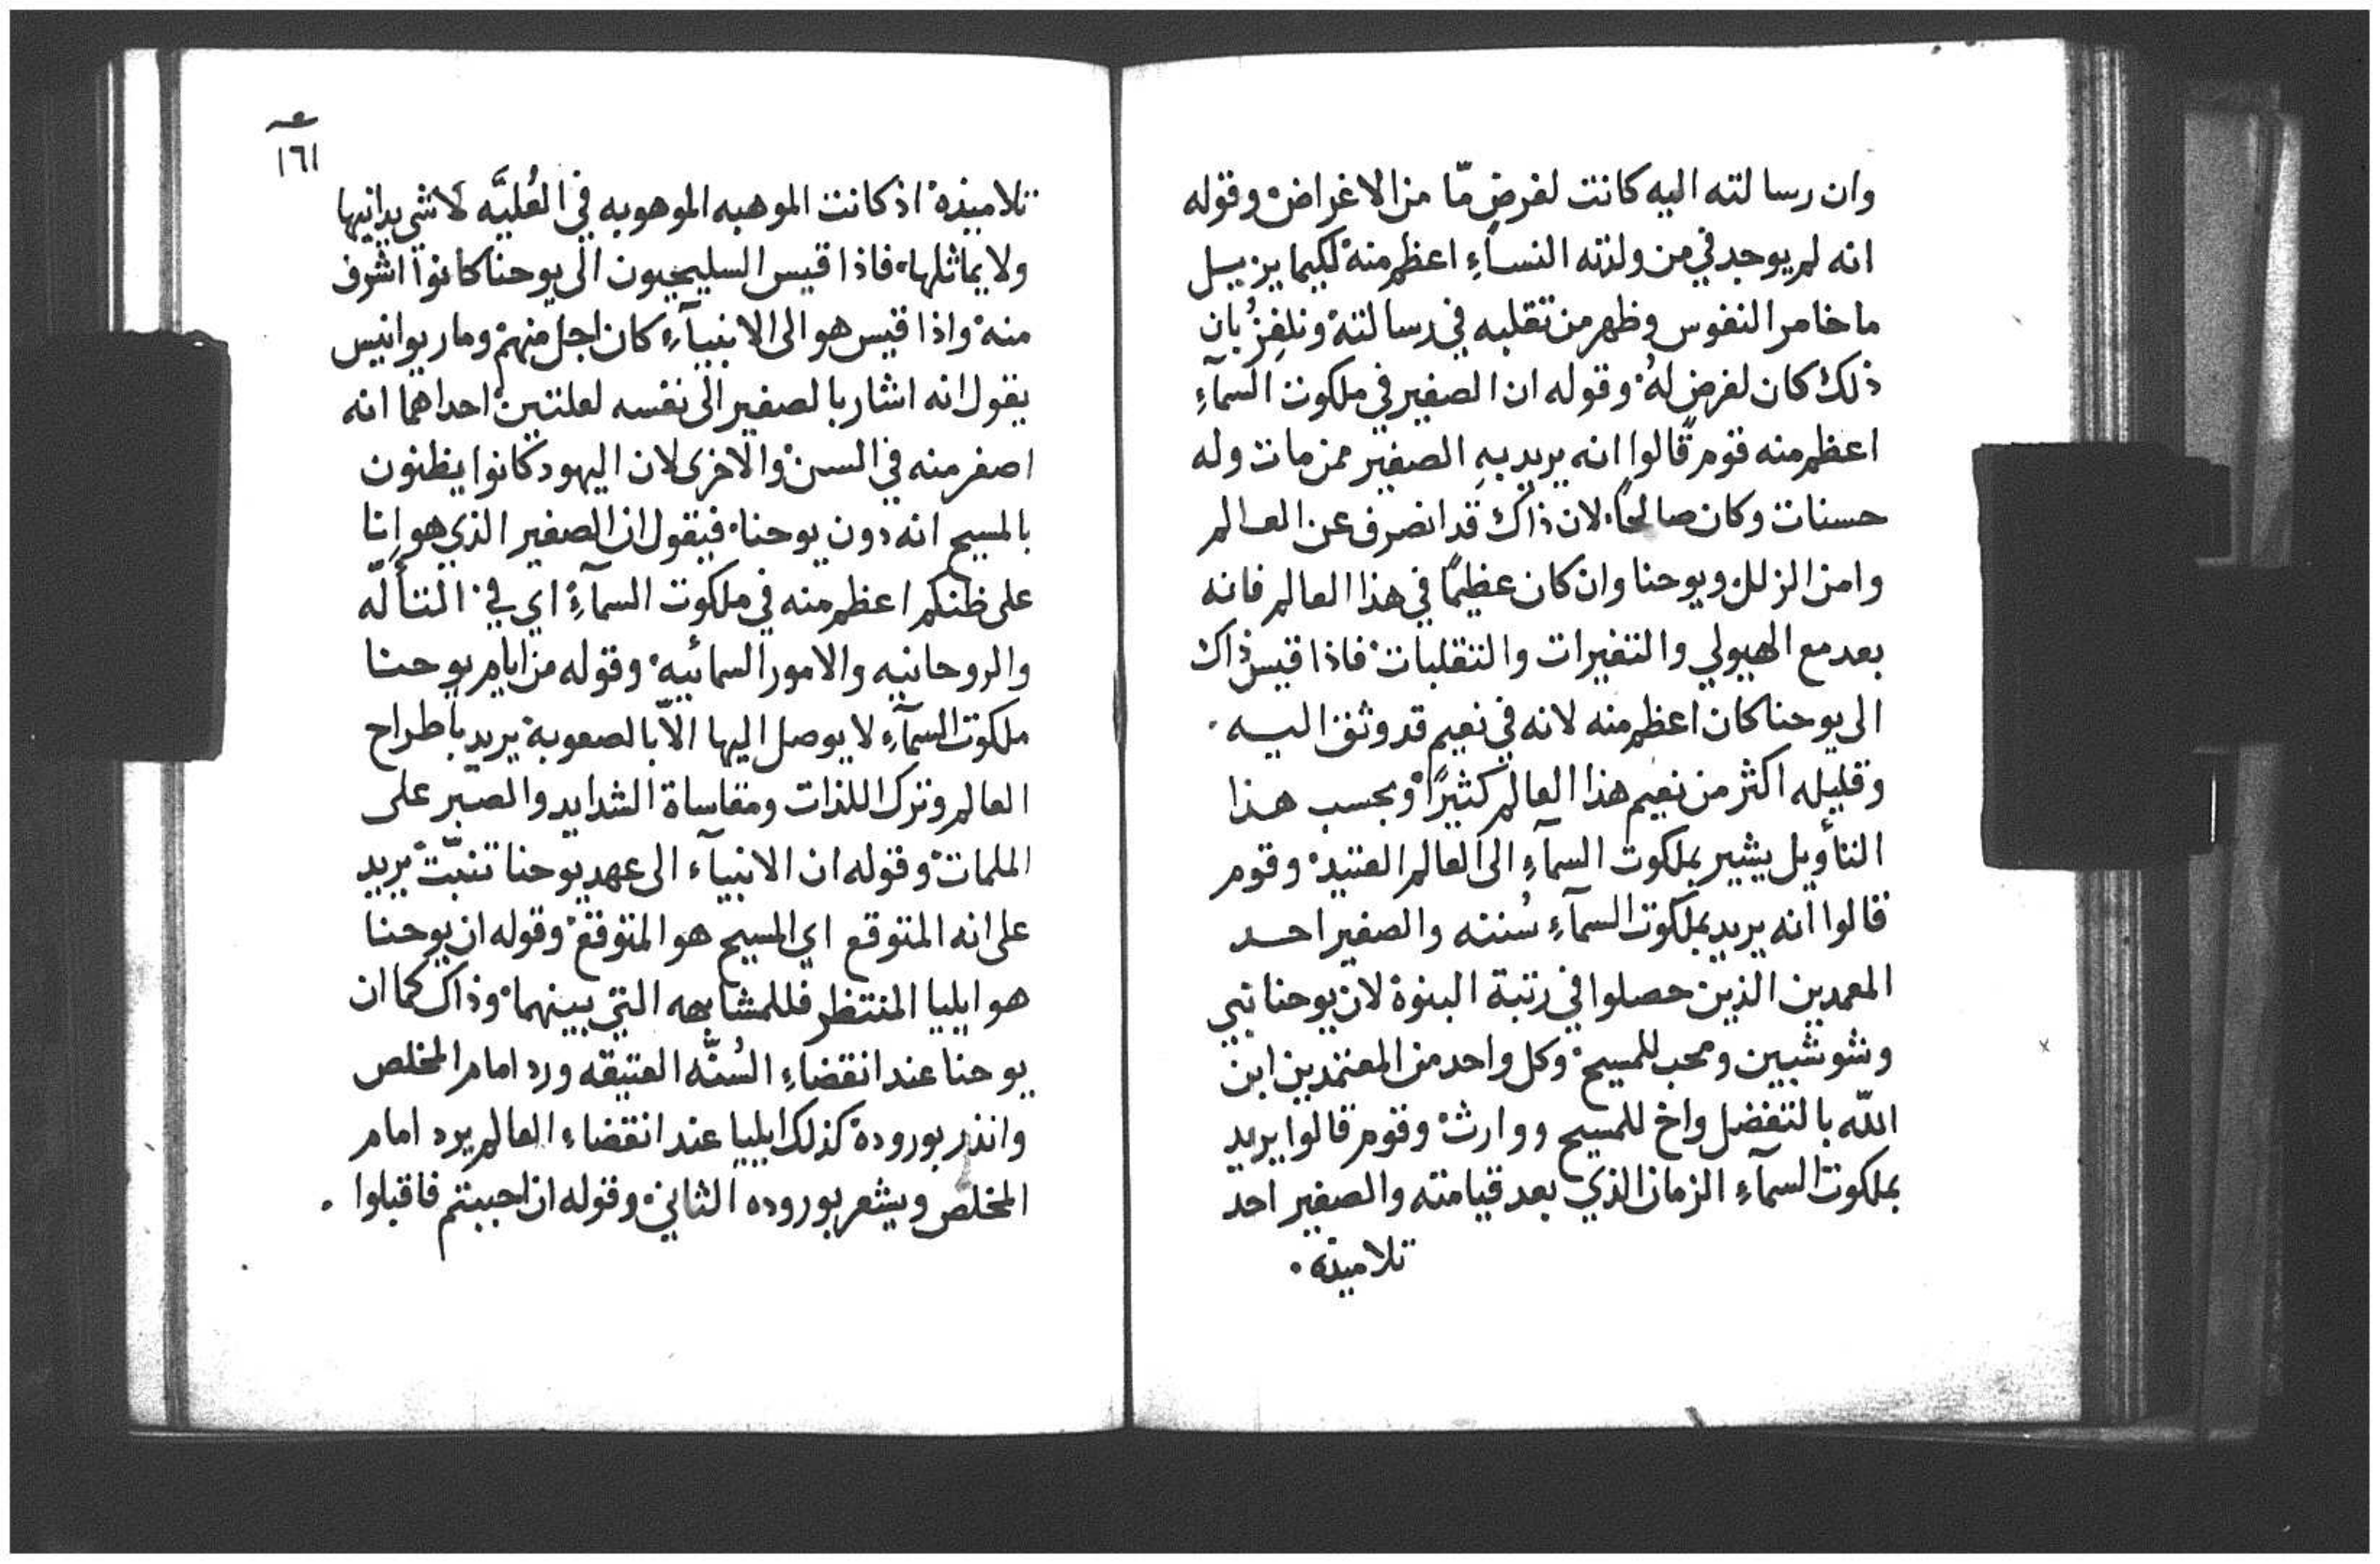 وان رسالته اليه كانت لغرضٍ مّا من الاغراض وقوله
انه لم يوجد في من ولدته النساءِ اعظم منه لكيما يزيل
ما خامر النفوس وظهر من تقلبه في رسالته بان
ذلك كان لغرضٍ لهُ وقوله ان الصغير في ملكوت السمآءِ
اعظم منه قوم قالوا انه يريد بهِ الصغير ممن مات وله
حسنات وكان صالحًا لان ذاك قد انصرف عن العالم
وامن الزلل ويوحنا وان كان عظيمًا في هذا العالم فانه
بعد مع الهيولي والتغيرات والتقلبات فاذا قيس ذاك
الى يوحنا كان اعظم منه لانه في نعيم قد وثق اليه .
وقليله اكثر من نعيم هذا العالم كثيرًا وبحسب هذا
التأويل يشير بملكوت السمآءِ الى العالم العتيد وقوم
قالوا انه يريد بملكوت السمآءِ سُنته والصغير احد
المعمدين الذين حصلوا في رتبة البنوة لان يوحنا نبي
وشوشبين ومحب للمسيح وكل واحد من المعتمدين ابن
اللّه بالتفضل واخ للمسيح ووارث وقوم قالوا يريد
بملكوت السمآءِ الزمان الذي بعد قيامته والصغير احد
تلاميذه .
١٦١
تلاميذه اذ كانت الموهبه الموهوبه في العُليَّه لا شي يدانيها
ولا يماثلها فاذا قيس السليحيون الى يوحنا كانوا اشرف
منه واذا قيس هو الى الانبيآءِ كان اجل منهم ومار يوانيس
يقول انه اشار بالصغير الى نفسه لعلتين احداهما انه
اصغر منه في السن والاخرى لان اليهود كانوا يظنون
بالمسيح انه دون يوحنا فيقول ان الصغير الذي هو انا
على ظنكم اعظم منه في ملكوت السمآءِ اي في التألّه
والروحانيه والامور السمائيه وقوله من ايام يوحنا
ملكوت السمآءِ لا يوصل اليها الاّ بالصعوبة يريد باطراح
العالم وترك اللذات ومقاساة الشدايد والصبر على
الملمات وقوله ان الانبيآء الى عهد يوحنا تنبّت يريد
على انه المتوقع اي المسيح هو المتوقع وقوله ان يوحنا
هو ايليا المنتظر فللمشابهه التي بينهما وذاك كما ان
يوحنا عند انقضاءِ السُنّه العتيقه ورد امام المخلص
وانذر بوروده كذلك ايليا عند انقضاء العالم يرد امام
المخلص ويشعر بوروده الثاني وقوله ان احببتم فاقبلوا .